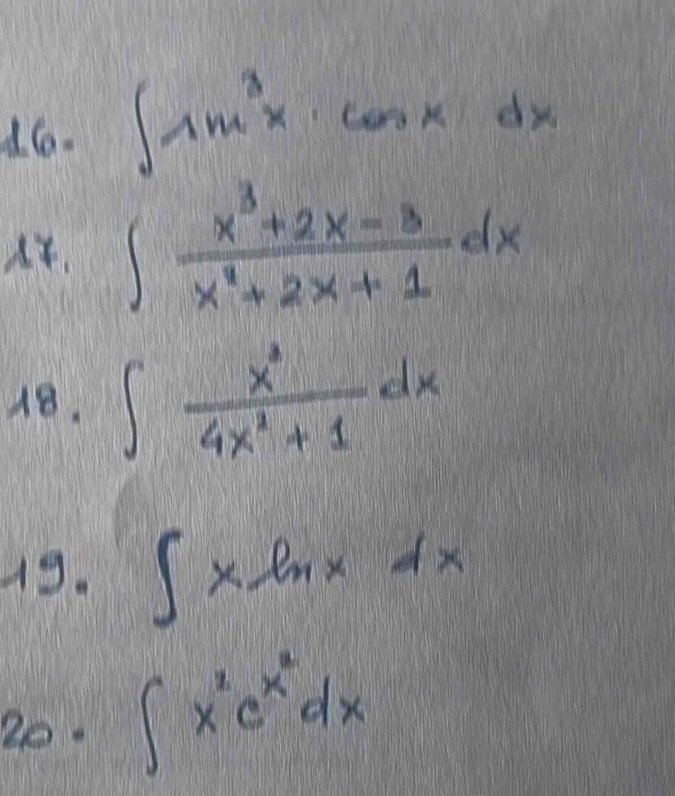 16. ∫ sin³x · cos x dx
17. ∫ (x³ + 2x - 3)/(x² + 2x + 1) dx
18. ∫ x²/(4x² + 1) dx
19. ∫ x ln x dx
20. ∫ x² e^(x²) dx